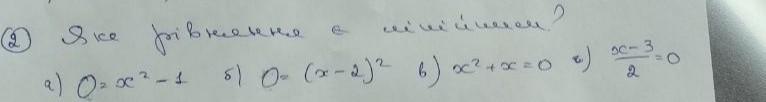 ② Яке рівняння є лінійним?
а) 0 = x² - 1 б) 0 = (x - 2)² в) x² + x = 0 г) (x - 3)/2 = 0